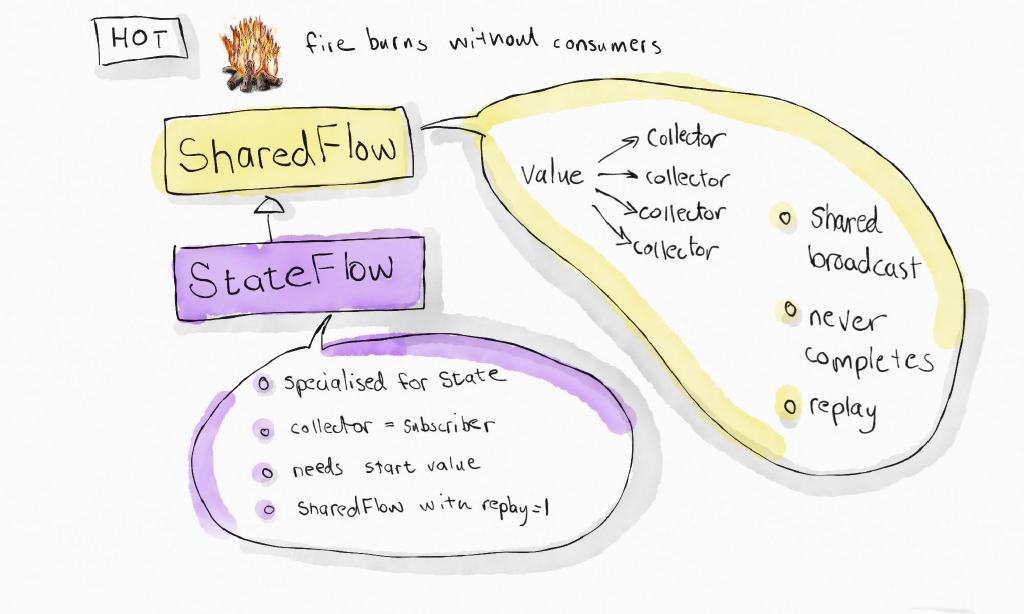 HOT
fire burns without consumers
SharedFlow
Value
collector
collector
collector
collector
Shared
broadcast
never
completes
replay
StateFlow
specialised for State
collector = subscriber
needs start value
SharedFlow with replay=1